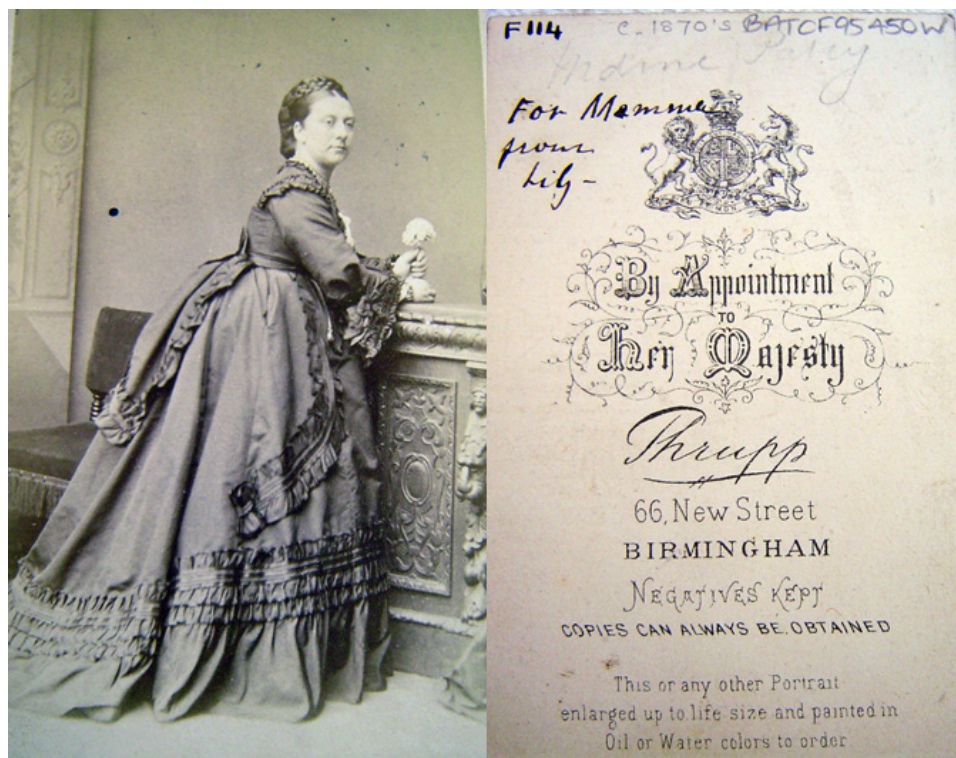 F114 c. 1870's BATCF95450W
For Mamma
from
Lily -
By Appointment
TO
Her Majesty
Thrupp
66, New Street
BIRMINGHAM
NEGATIVES KEPT
COPIES CAN ALWAYS BE OBTAINED
This or any other Portrait
enlarged up to life size and painted in
Oil or Water colors to order